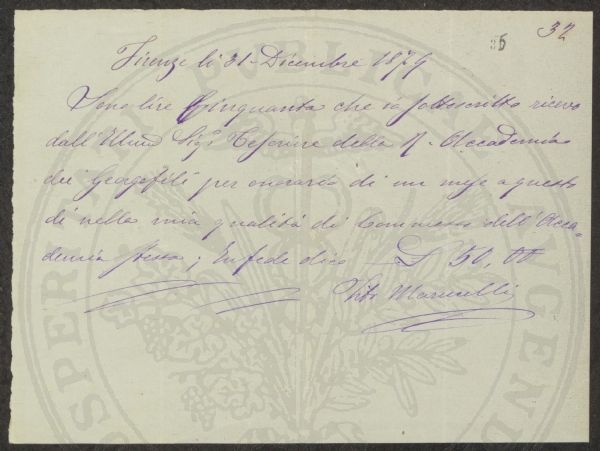 35 32
Firenze li 31 Dicembre 1879
Sono lire Cinquanta che io sottoscritto ricevo
dall'Illmo Sigr Tesoriere della R. Accademia
dei Georgofili per onorario di un mese a questo
dì nella mia qualità di Commesso dell'Acca=
demia stessa; In fede dico L 50,00
Marucelli
PROSPERITATI PUBLICAE AUGENDAE